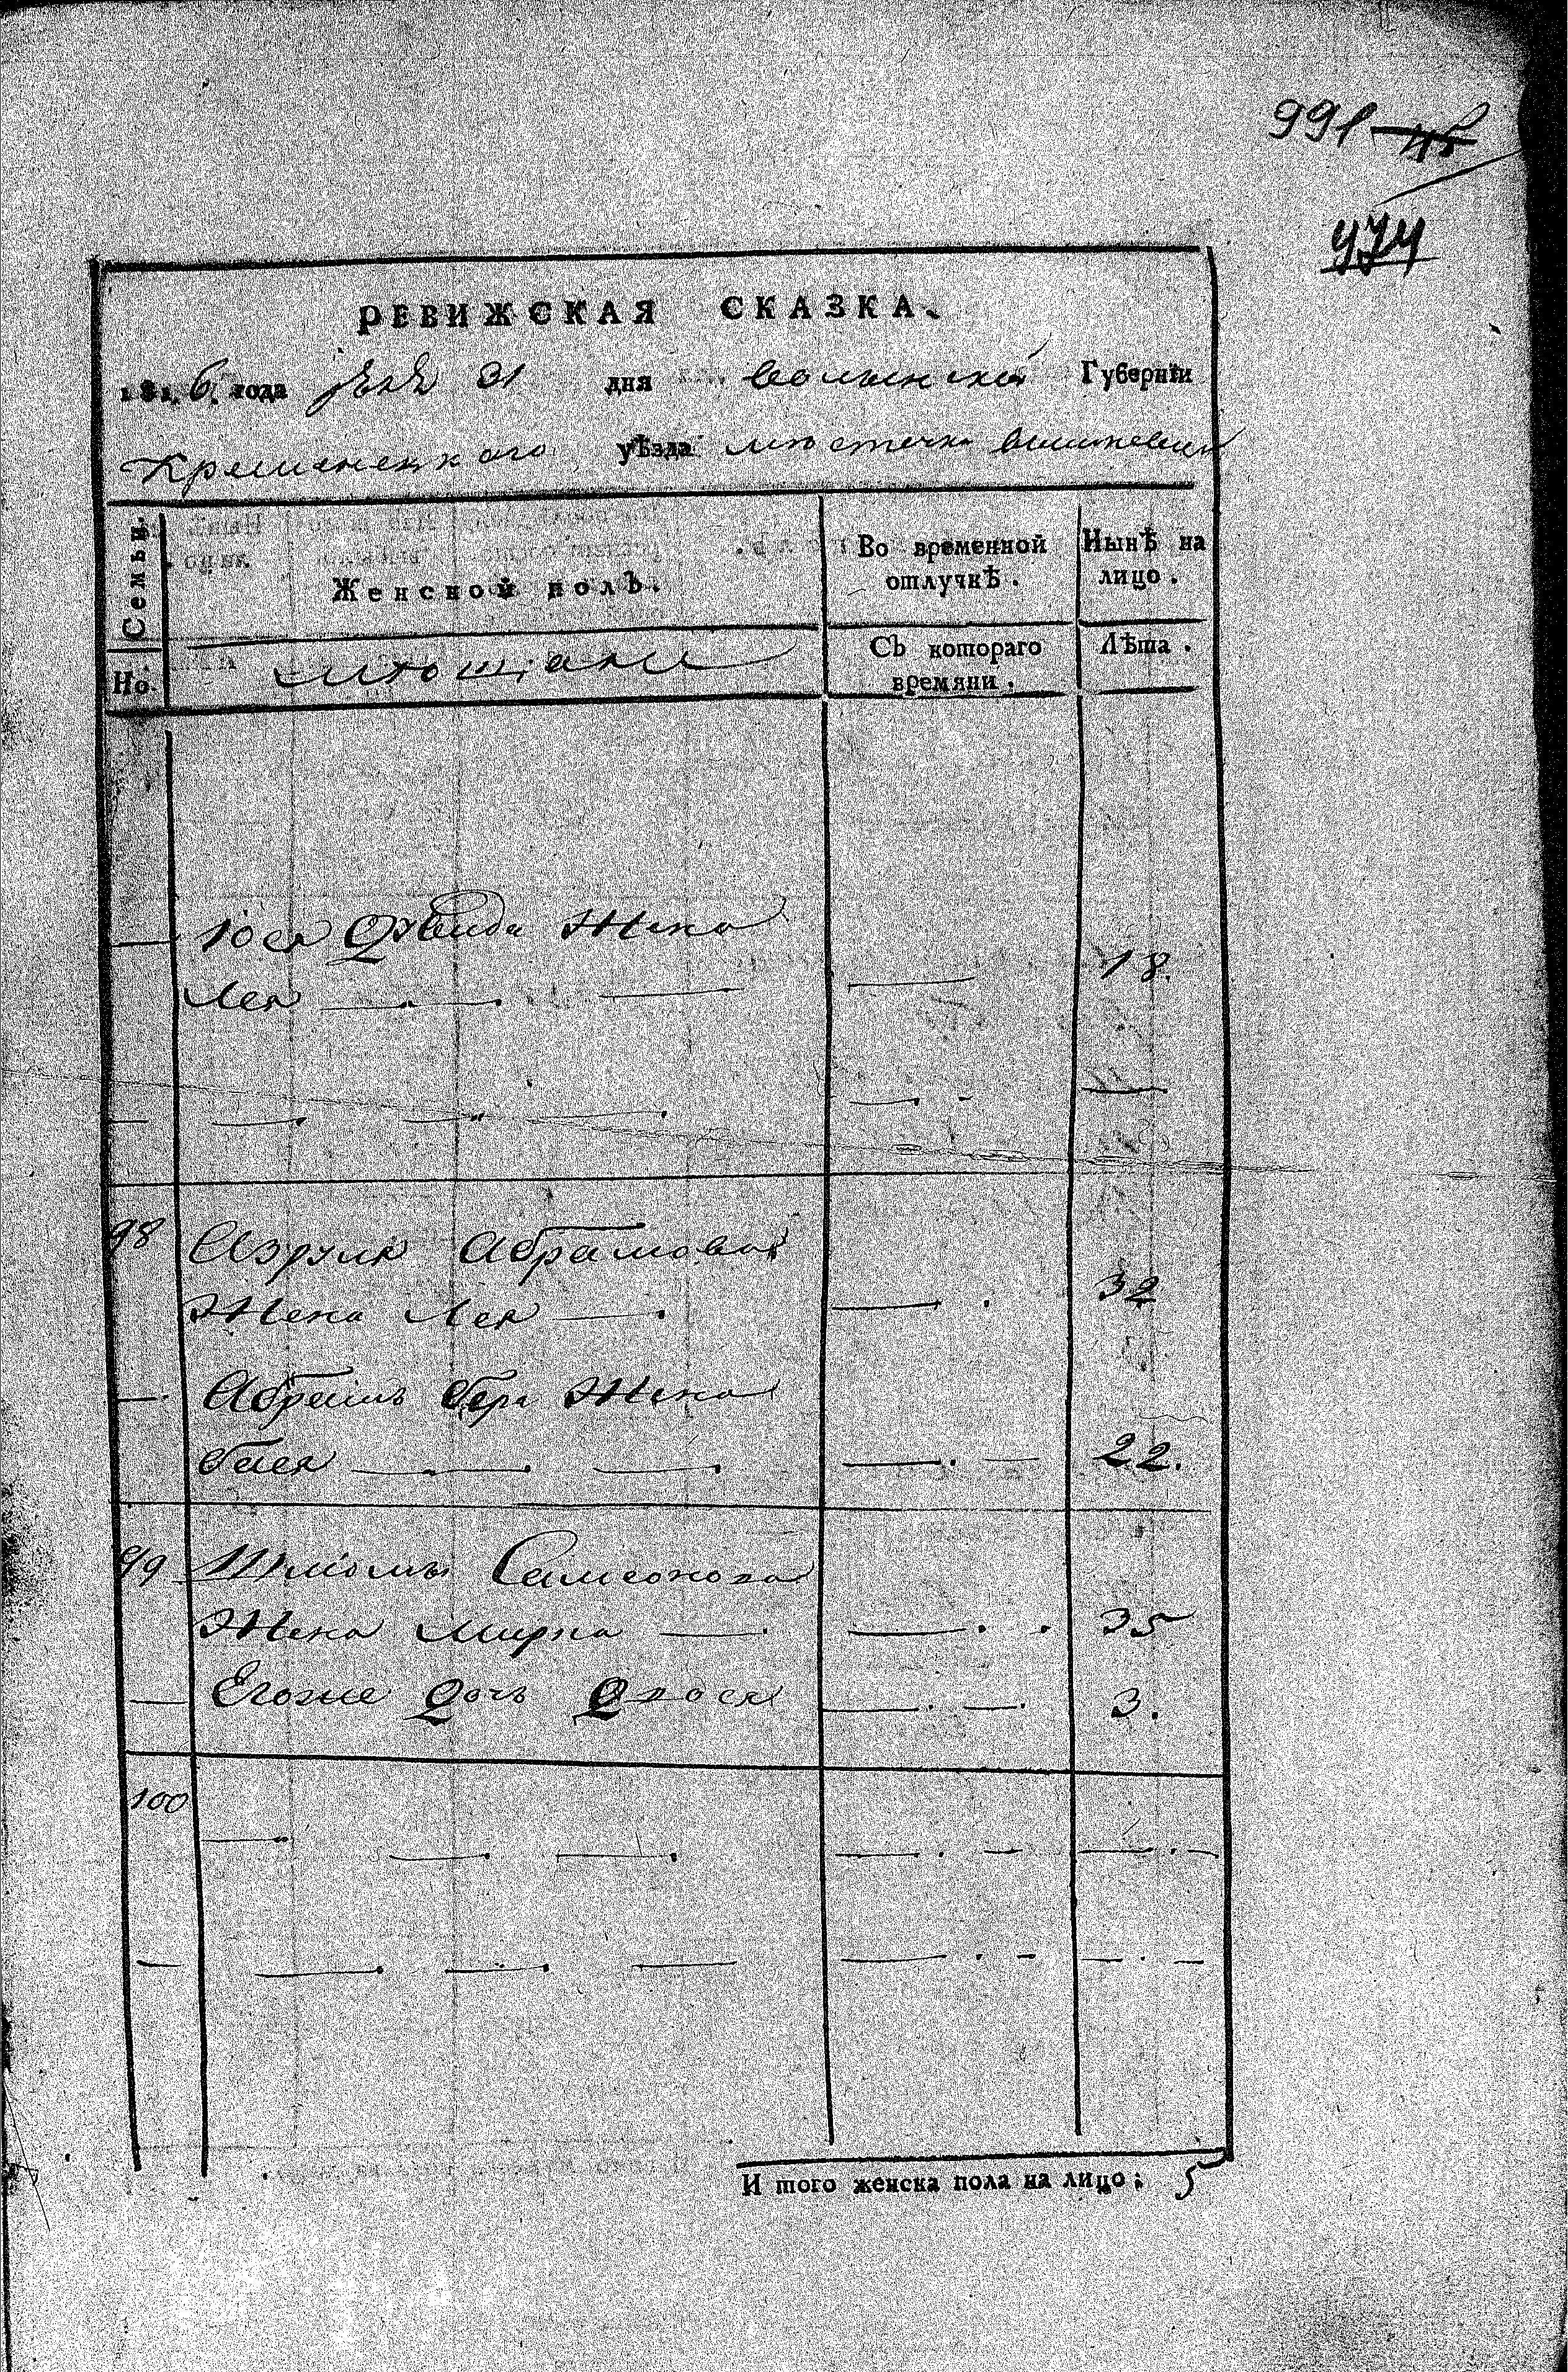 991
474
РЕВИЖСКАЯ СКАЗКА.
1816 года 31 дня Волынской Губернїи
Кременецкого уѣзда местечка
Семьи.
Женской полъ.
Во временной отлучкѣ.
Нынѣ на лицо.
Но.
мещане
Съ котораго времяни.
Лѣта.
— Іося Давида Жена
Лея — — — — 18.
— — — — — —
98 Абрамова
Жена Лея — — 32
— Абрамъ Бера Жена
Бася — — — — 22.
99 Шліомы Самсонова
Жена Мирка — — 35
— Егоже дочь — — 3.
100 — — — — — —
— — — — — — —
И того женска пола на лицо: 5